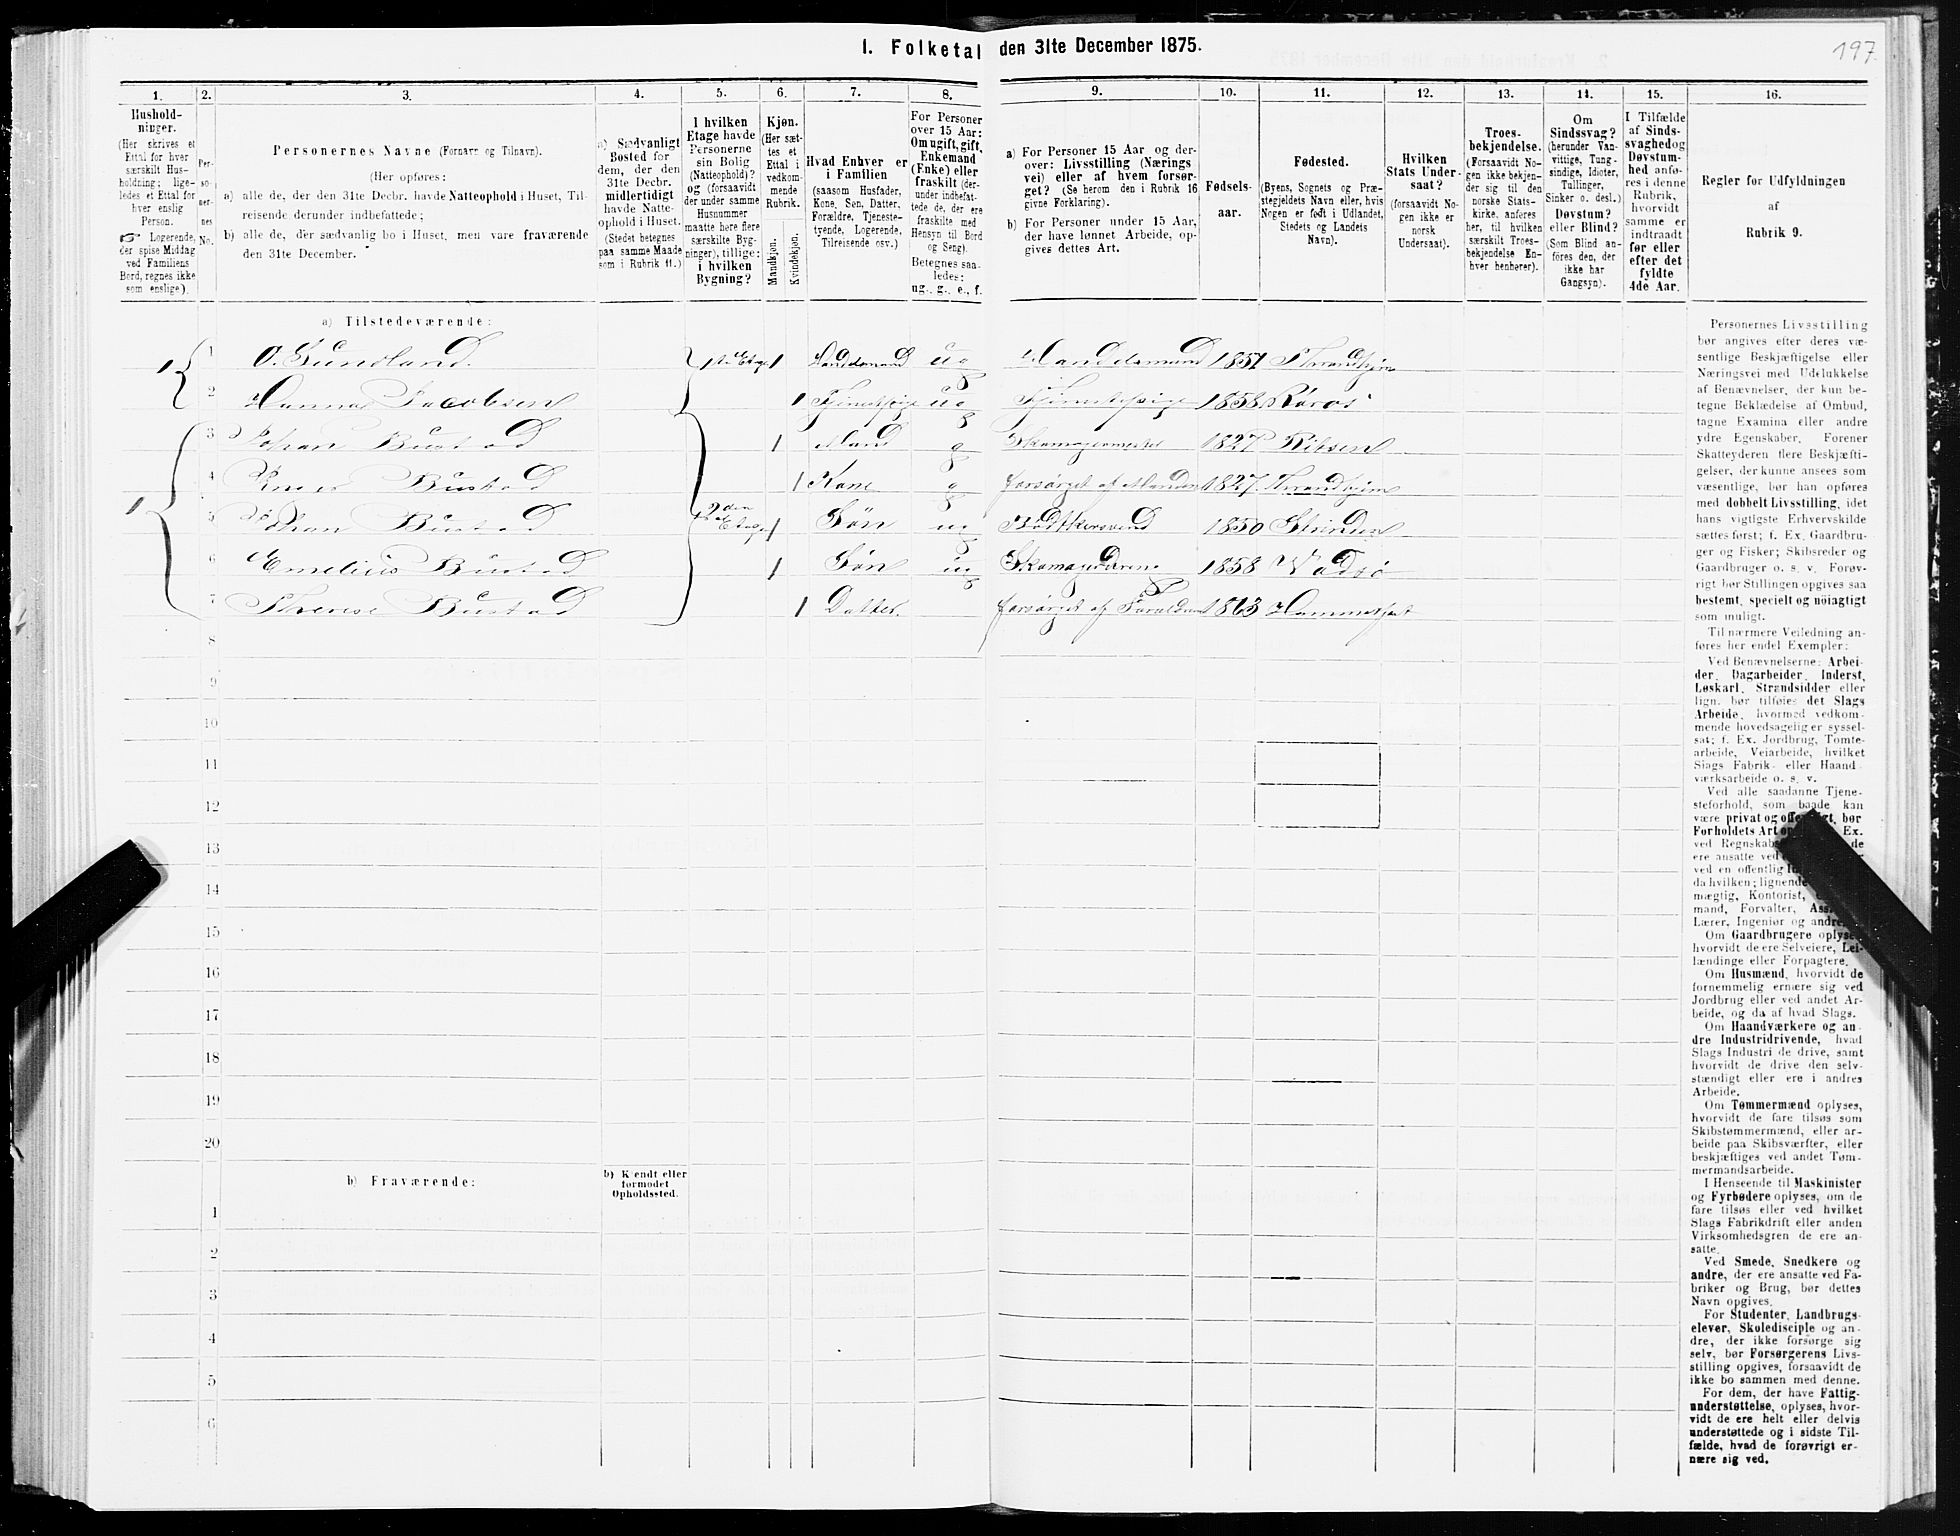 1. Folketal den 31te December 1875.
197
1.
Hushold-
ninger.
(Her skrives et
Ettal for hver
særskilt Hus-
holdning; lige-
ledes et Ettal for
hver enslig
Person.
☞ Logerende,
der spise Middag
ved Familiens
Bord, regnes ikke
som enslige).
2.
Per-
so-
ner-
nes
No.
3.
Personernes Navne (Fornavn og Tilnavn).
(Her opføres:
a) alle de, der den 31te Decbr. havde Natteophold i Huset, Til-
reisende derunder indbefattede;
b) alle de, der sædvanlig bo i Huset, men vare fraværende
den 31te December.
4.
a) Sædvanligt
Bosted for
dem, der den
31te Decbr.
midlertidigt
havde Natte-
ophold i Huset.
(Stedet betegnes
paa samme Maade
som i Rubrik 11.)
5.
I hvilken
Etage havde
Personerne
sin Bolig
(Natteophold)?
og (forsaavidt
der under samme
Husnummer
maatte høre flere
særskilte Byg-
ninger), tillige:
i hvilken
Bygning?
6.
Kjøn.
(Her sæt-
tes et
Ettal i
vedkom-
mende
Rubrik.
Mandkjøn.
Kvindekjøn.
7.
Hvad Enhver er
i Familien
(saasom Husfader,
Kone, Søn, Datter,
Forældre, Tjeneste-
tyende, Logerende,
Tilreisende osv.)
8.
For Personer
over 15 Aar:
Om ugift, gift,
Enkemand
(Enke) eller
fraskilt (der-
under indbefat-
tede de, der ere
fraskilte med
Hensyn til Bord
og Seng).
Betegnes saa-
ledes:
ug., g., e., f.
9.
a) For Personer 15 Aar og der-
over: Livsstilling (Nærings
vei) eller af hvem forsør-
get? (Se herom den i Rubrik 16
givne Forklaring).
b) For Personer under 15 Aar,
der have lønnet Arbeide, op-
gives dettes Art.
10.
Fødsels-
aar.
11.
Fødested.
(Byens, Sognets og Præ-
stegjeldets Navn eller, hvis
Nogen er født i Udlandet,
Stedets og Landets
Navn).
12.
Hvilken
Stats Under-
saat?
(forsaavidt No-
gen ikke er
norsk
Undersaat).
13.
Troes-
bekjendelse.
(Forsaavidt No-
gen ikke bekjen-
der sig til den
norske Stats-
kirke, anføres
her, til hvilken
særskilt Troes-
bekjendelse En-
hver henhører).
14.
Om
Sindssvag?
(herunder Van-
vittige, Tung-
sindige, Idioter,
Tullinger,
Sinker o. desl.)
Døvstum?
eller Blind?
(Som Blind an-
føres den, der
ikke har
Gangsyn).
15.
I Tilfælde
af Sinds-
svaghed og
Døvstum-
hed anfø-
res i denne
Rubrik,
hvorvidt
samme er
indtraadt
før eller
efter det
fyldte
4de Aar.
16.
Regler for Udfyldningen
af
Rubrik 9.
a) Tilstedeværende:
1 1 O. Sundland. 1ste Etage 1 Handelsmand ug Handelsmand 1851 Throndhjem
2 Hanna Jacobsen 1 Tjenestepige ug Tjenestepige 1858 Røros
3 Johan Bustad 1 Mand g Skomagermester 1827
1 4 Bustad 1 Kone g forsørget af Manden 1827. Throndhjem
5 Johan Bustad 2den Etage 1 Søn ug Bødkersvend 1850 Strinden
6 Emelius Bustad 1 Søn ug 1858 Vadsø
7 Therese Bustad 1 Datter forsørget af Forældrene 1863 Hammerfest
8
9
10
11
12
13
14
15
16
17
18
19
20
b) Fraværende:
b) Kjendt eller
formodet
Opholdssted.
1
2
3
4
5
6
Personernes Livsstilling
bør angives efter deres væ-
sentlige Beskjæftigelse eller
Næringsvei med Udelukkelse
af Benævnelser, der kun be-
tegne Beklædelse af Ombud,
tagne Examina eller andre
ydre Egenskaber. Forener
Skatteyderen flere Beskjæfti-
gelser, der kunne ansees som
væsentlige, bør han opføres
med dobbelt Livsstilling, idet
hans vigtigste Erhvervskilde
sættes først; f. Ex. Gaardbru-
ger og Fisker; Skibsreder og
Gaardbruger o. s. v. Forøv-
rigt bør Stillingen opgives saa
bestemt, specielt og nøiagtigt
som muligt.
Til nærmere Veiledning an-
føres her endel Exempler:
Ved Benævnelserne: Arbei-
der, Dagarbeider, Inderst,
Løskarl, Strandsidder eller
lign. bør tilføies det Slags
Arbeide, hvormed vedkom-
mende hovedsagelig er syssel-
sat; f. Ex. Jordbrug, Tomte-
arbeide, Veiarbeide, hvilket
Slags Fabrik- eller Haand-
værksarbeide o. s. v.
Ved alle saadanne Tjene-
steforhold, som baade kan
være privat og offentligt, bør
Forholdets Art Ex.
ved Regnskabs de
ere ansatte ved
ved en offentlig
da hvilken; lignende
mægtig, Kontorist,
mand, Forvalter,
Lærer, Ingeniør og andre.
Om Gaardbrugere oplyses,
hvorvidt de ere Selveiere, Lei-
lændinge eller Forpagtere.
Om Husmænd, hvorvidt de
fornemmelig ernære sig ved
Jordbrug eller ved andet Ar-
beide, og da af hvad Slags.
Om Haandværkere og an-
dre Industridrivende, hvad
Slags Industri de drive, samt
hvorvidt de drive den selv-
stændigt eller ere i andres
Arbeide.
Om Tømmermænd oplyses,
hvorvidt de fare tilsøs som
Skibstømmermænd, eller ar-
beide paa Skibsværfter, eller
beskjæftiges ved andet Tøm-
mermandsarbeide.
I Henseende til Maskinister
og Fyrbødere oplyses, om de
fare tilsøs eller ved hvilket
Slags Fabrikdrift eller anden
Virksomhedsgren de ere an-
satte.
Ved Smede, Snedkere og
andre, der ere ansatte ved Fa-
briker og Brug, bør dettes
Navn opgives.
For Studenter, Landbrugs-
elever, Skoledisciple og an-
dre, der ikke forsørge sig
selv, bør Forsørgerens Livs-
stilling opgives, forsaavidt de
ikke bo sammen med denne.
For dem, der have Fattig-
understøttelse, oplyses, hvor-
vidt de ere helt eller delvis
understøttede og i sidste Til-
fælde, hvad de forøvrigt er-
nære sig ved.